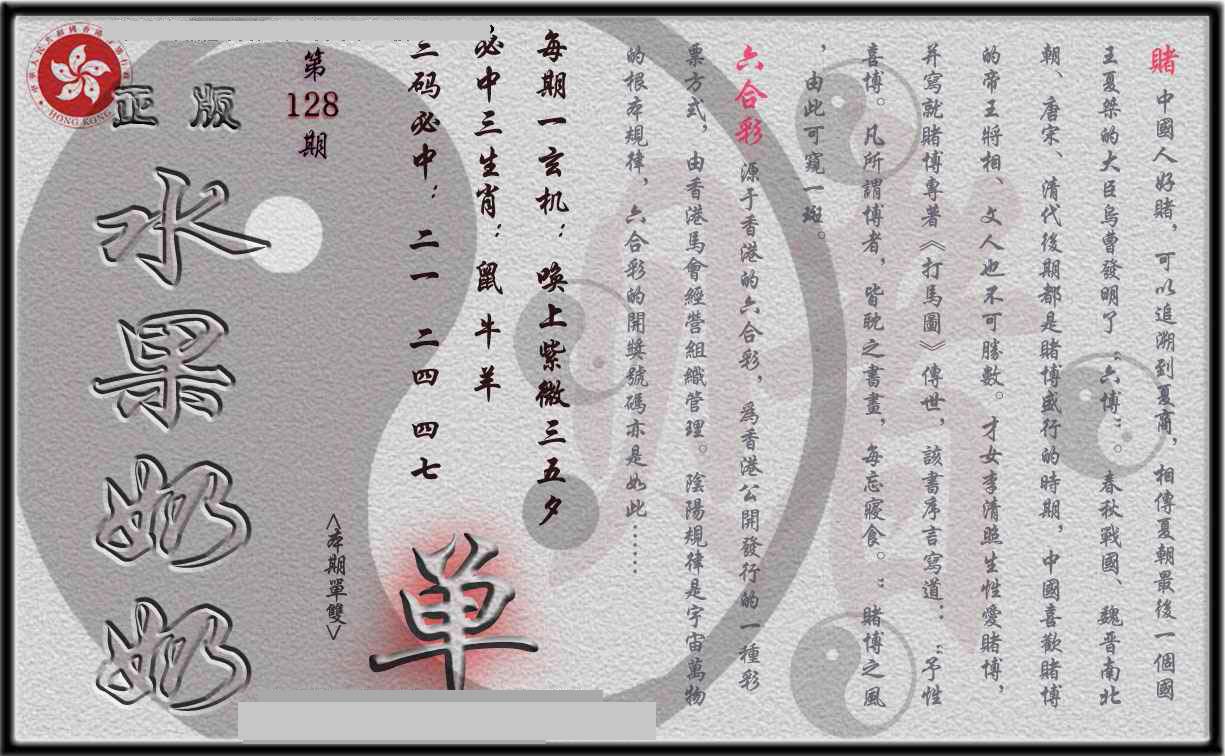 賭 中國人好賭，可以追溯到夏商，相傳夏朝最後一個國
王夏桀的大臣烏曹發明了“六博”。春秋戰國、魏晉南北
朝、唐宋、清代後期都是賭博盛行的時期，中國喜歡賭博
的帝王將相、文人也不可勝數。才女李清照生性愛賭博，
并寫就賭博專著《打馬圖》傳世，該書序言寫道：“予性
喜博。凡所謂博者，皆耽之書畫，每忘寢食。”賭博之風
，由此可窺一斑。
六合彩 源于香港的六合彩，為香港公開發行的一種彩
票方式，由香港馬會經營組織管理。陰陽規律是宇宙萬物
的根本規律，六合彩的開獎號碼亦是如此……
每期一玄机：喚上紫微三五夕
必中三生肖：鼠牛羊
三码必中：二一 二四 四七
单
<本期單雙>
第
128
期
正版
水果奶奶
HONG KONG